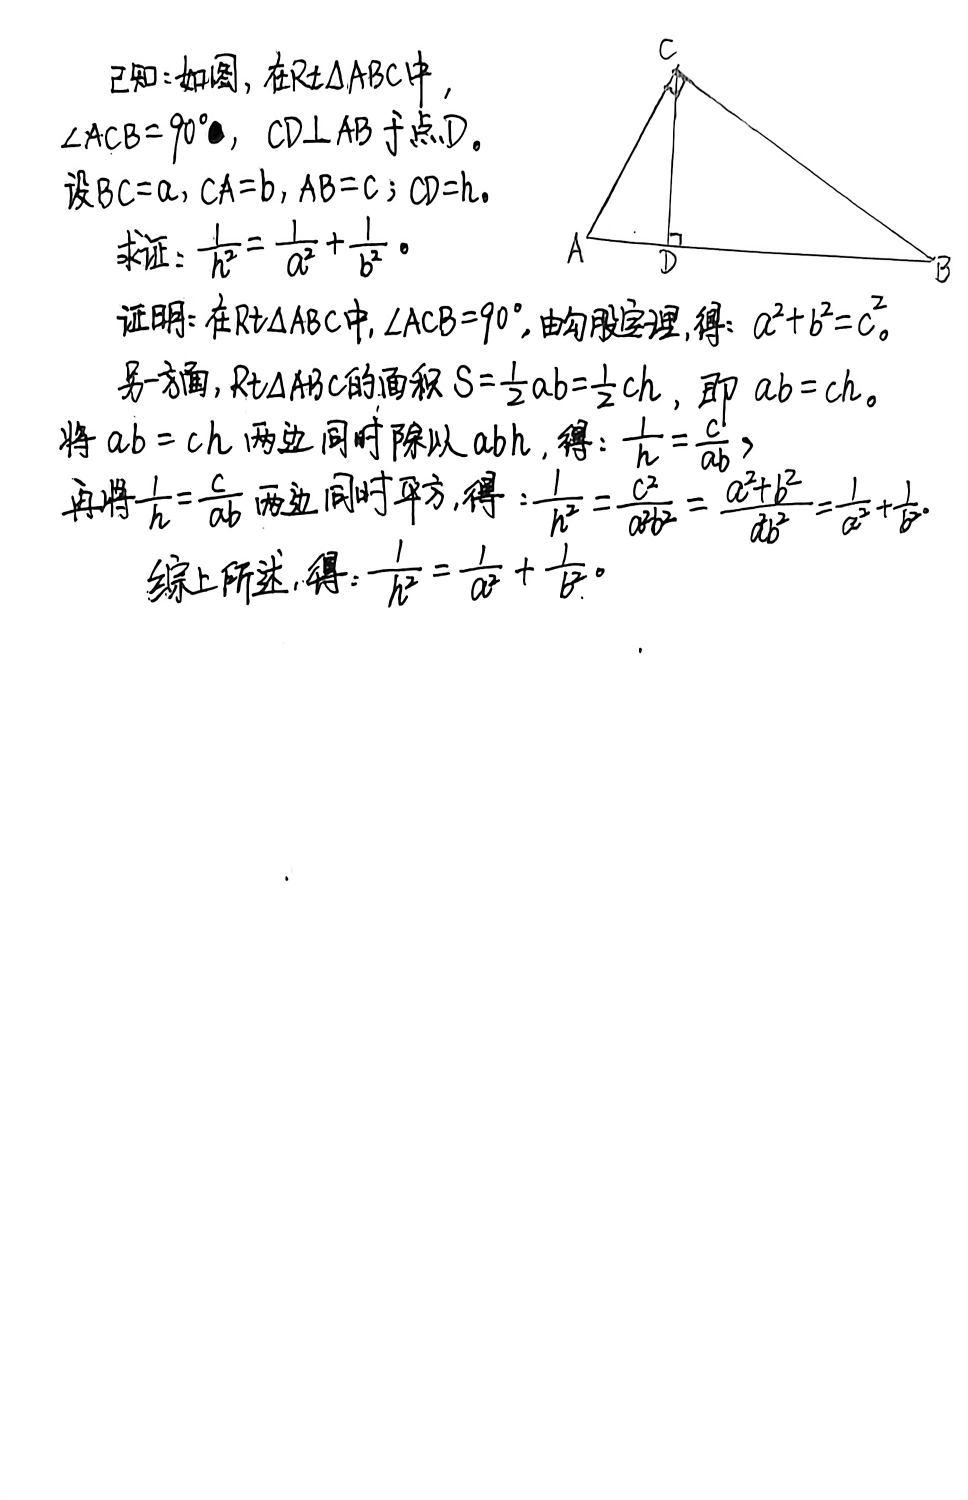 已知：如图，在Rt△ABC中，
∠ACB=90°，CD⊥AB于点D。
设BC=a，CA=b，AB=c；CD=h。
求证：1/h²=1/a²+1/b²。
C
A
D
B
证明：在Rt△ABC中，∠ACB=90°，由勾股定理，得：a²+b²=c²。
另一方面，Rt△ABC的面积S=1/2ab=1/2ch，即ab=ch。
将ab=ch两边同时除以abh，得：1/h=c/ab，
再将1/h=c/ab两边同时平方，得：1/h²=c²/a²b²=a²+b²/a²b²=1/a²+1/b²。
综上所述，得：1/h²=1/a²+1/b²。